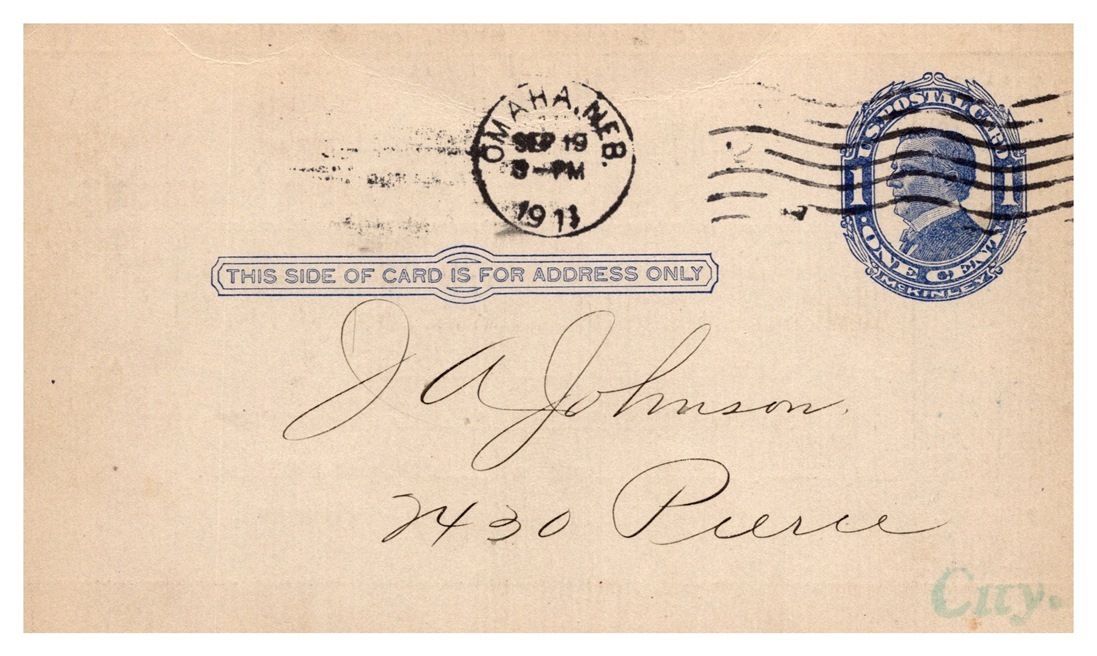 OMAHA, NEB.
SEP 19
8-PM
1911
U.S. POSTAL CARD
1 1
·ONE CENT·
McKINLEY
THIS SIDE OF CARD IS FOR ADDRESS ONLY
J A Johnson.
2430 Pierce
City.